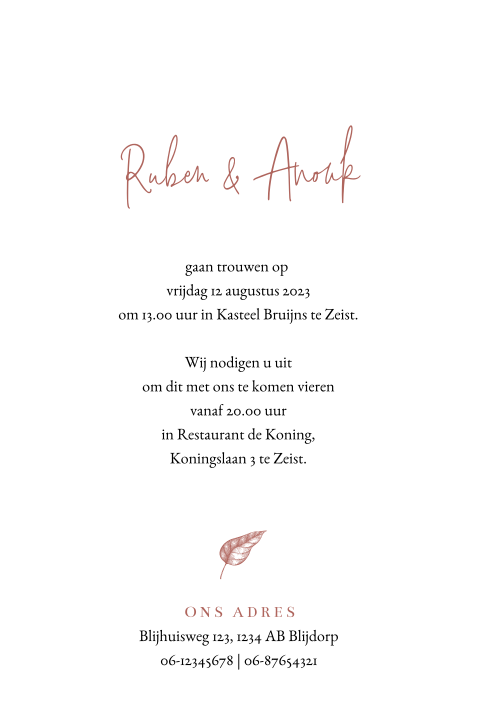 Ruben & Anouk
gaan trouwen op
vrijdag 12 augustus 2023
om 13.00 uur in Kasteel Bruijns te Zeist.
Wij nodigen u uit
om dit met ons te komen vieren
vanaf 20.00 uur
in Restaurant de Koning,
Koningslaan 3 te Zeist.
ONS ADRES
Blijhuisweg 123, 1234 AB Blijdorp
06-12345678 | 06-87654321